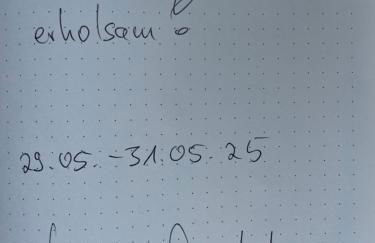 erholsam!
29.05.-31.05.25